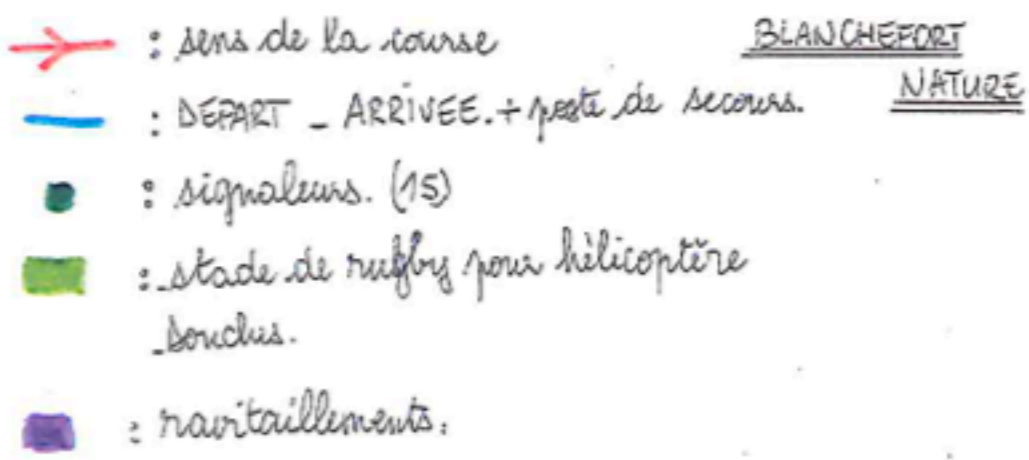 : sens de la course
BLANCHEFORT
NATURE
: DEPART _ ARRIVEE. + poste de secours.
: signaleurs. (15)
: stade de rugby pour hélicoptère
: ravitaillements.